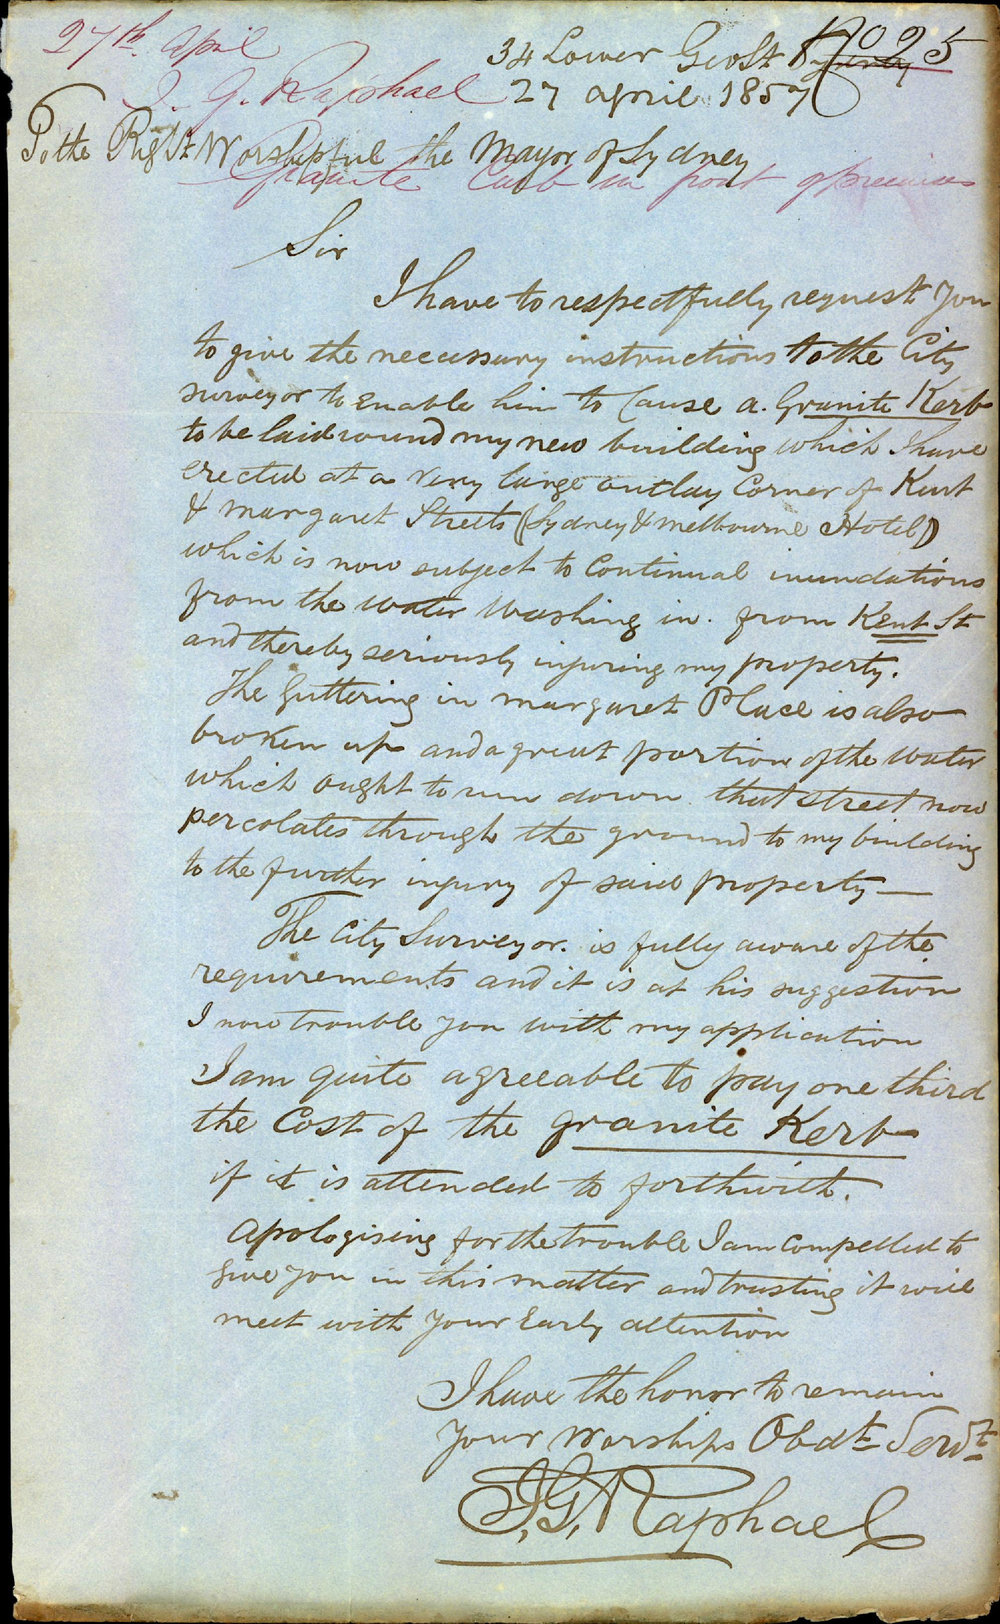 27th April
No 95
34 Lower Geo St Sydney
J. G. Raphael
27 april 1857
To the Right Worshipful the Mayor of Sydney
Granite Curb in front of premises
Sir
I have to respectfully request you
to give the necessary instructions to the City
surveyor to Enable him to Cause a. Granite Kerb
to be laid round my new building which I have
erected at a very large outlay Corner of Kent
& margaret Streets (Sydney & melbourne Hotel)
which is now subject to Continual inundations
from the water Washing in. from Kent St
and thereby seriously injuring my property.
The Guttering in margaret Place is also
broken up and a great portion of the water
which ought to run down that street now
percolates through the ground to my building
to the further injury of said property —
The City Surveyor. is fully aware of the
requirements and it is at his suggestion
I now trouble you with my application
I am quite agreeable to pay one third
the Cost of the granite Kerb
if it is attended to forthwith.
Apologising for the trouble I am Compelled to
give you in this matter and trusting it will
meet with your Early attention
I have the honor to remain
your Worships Obdt Servt
J. G. Raphael